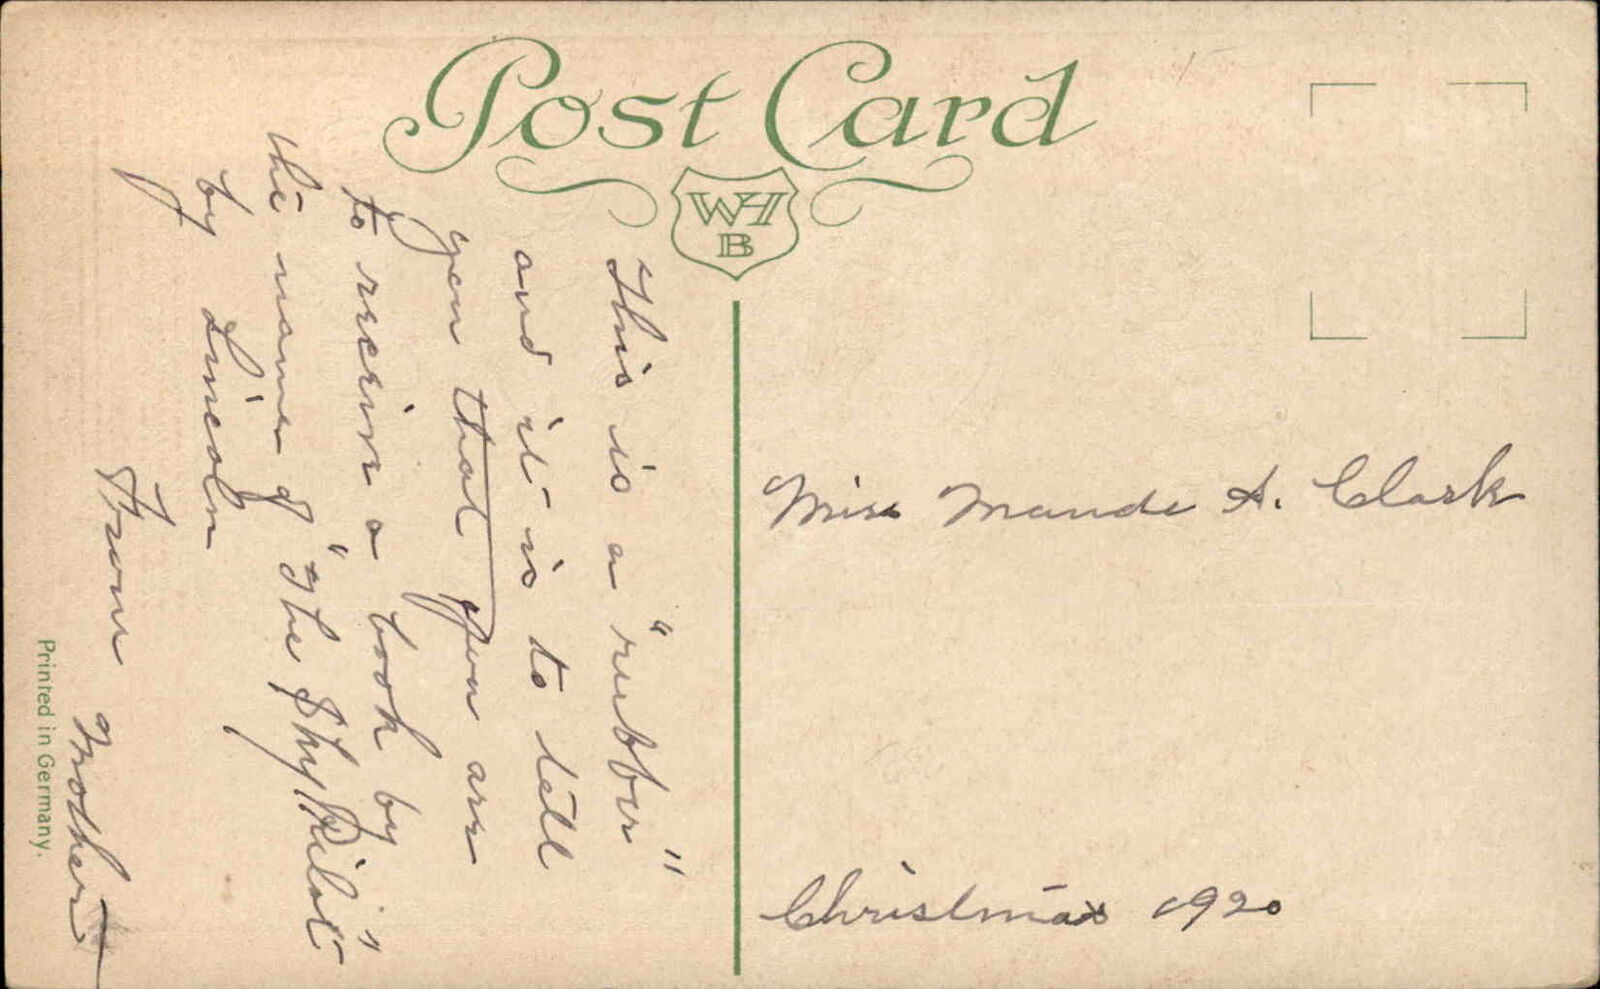 Post Card
WH
B
This is a "rubber"
and it is to tell
you that you are
to receive a book by
the name of "The Shy Pilot"
by Lincoln
From Mother
Miss Maude A. Clark
Christmas 1920
Printed in Germany.